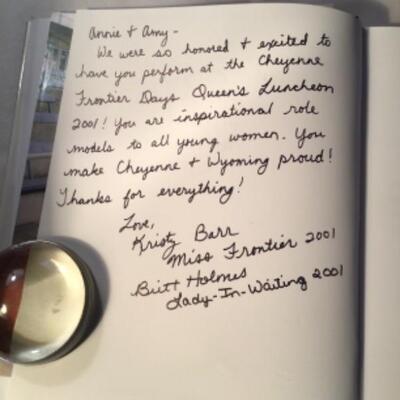 Annie & Amy -
We were so honored & excited to
have you perform at the Cheyenne
Frontier Days Queen's Luncheon
2001! You are inspirational role
models to all young women. You
make Cheyenne & Wyoming proud!
Thanks for everything!
Love,
Kristy Barr
Miss Frontier 2001
Britt Holmes
Lady-In-Waiting 2001